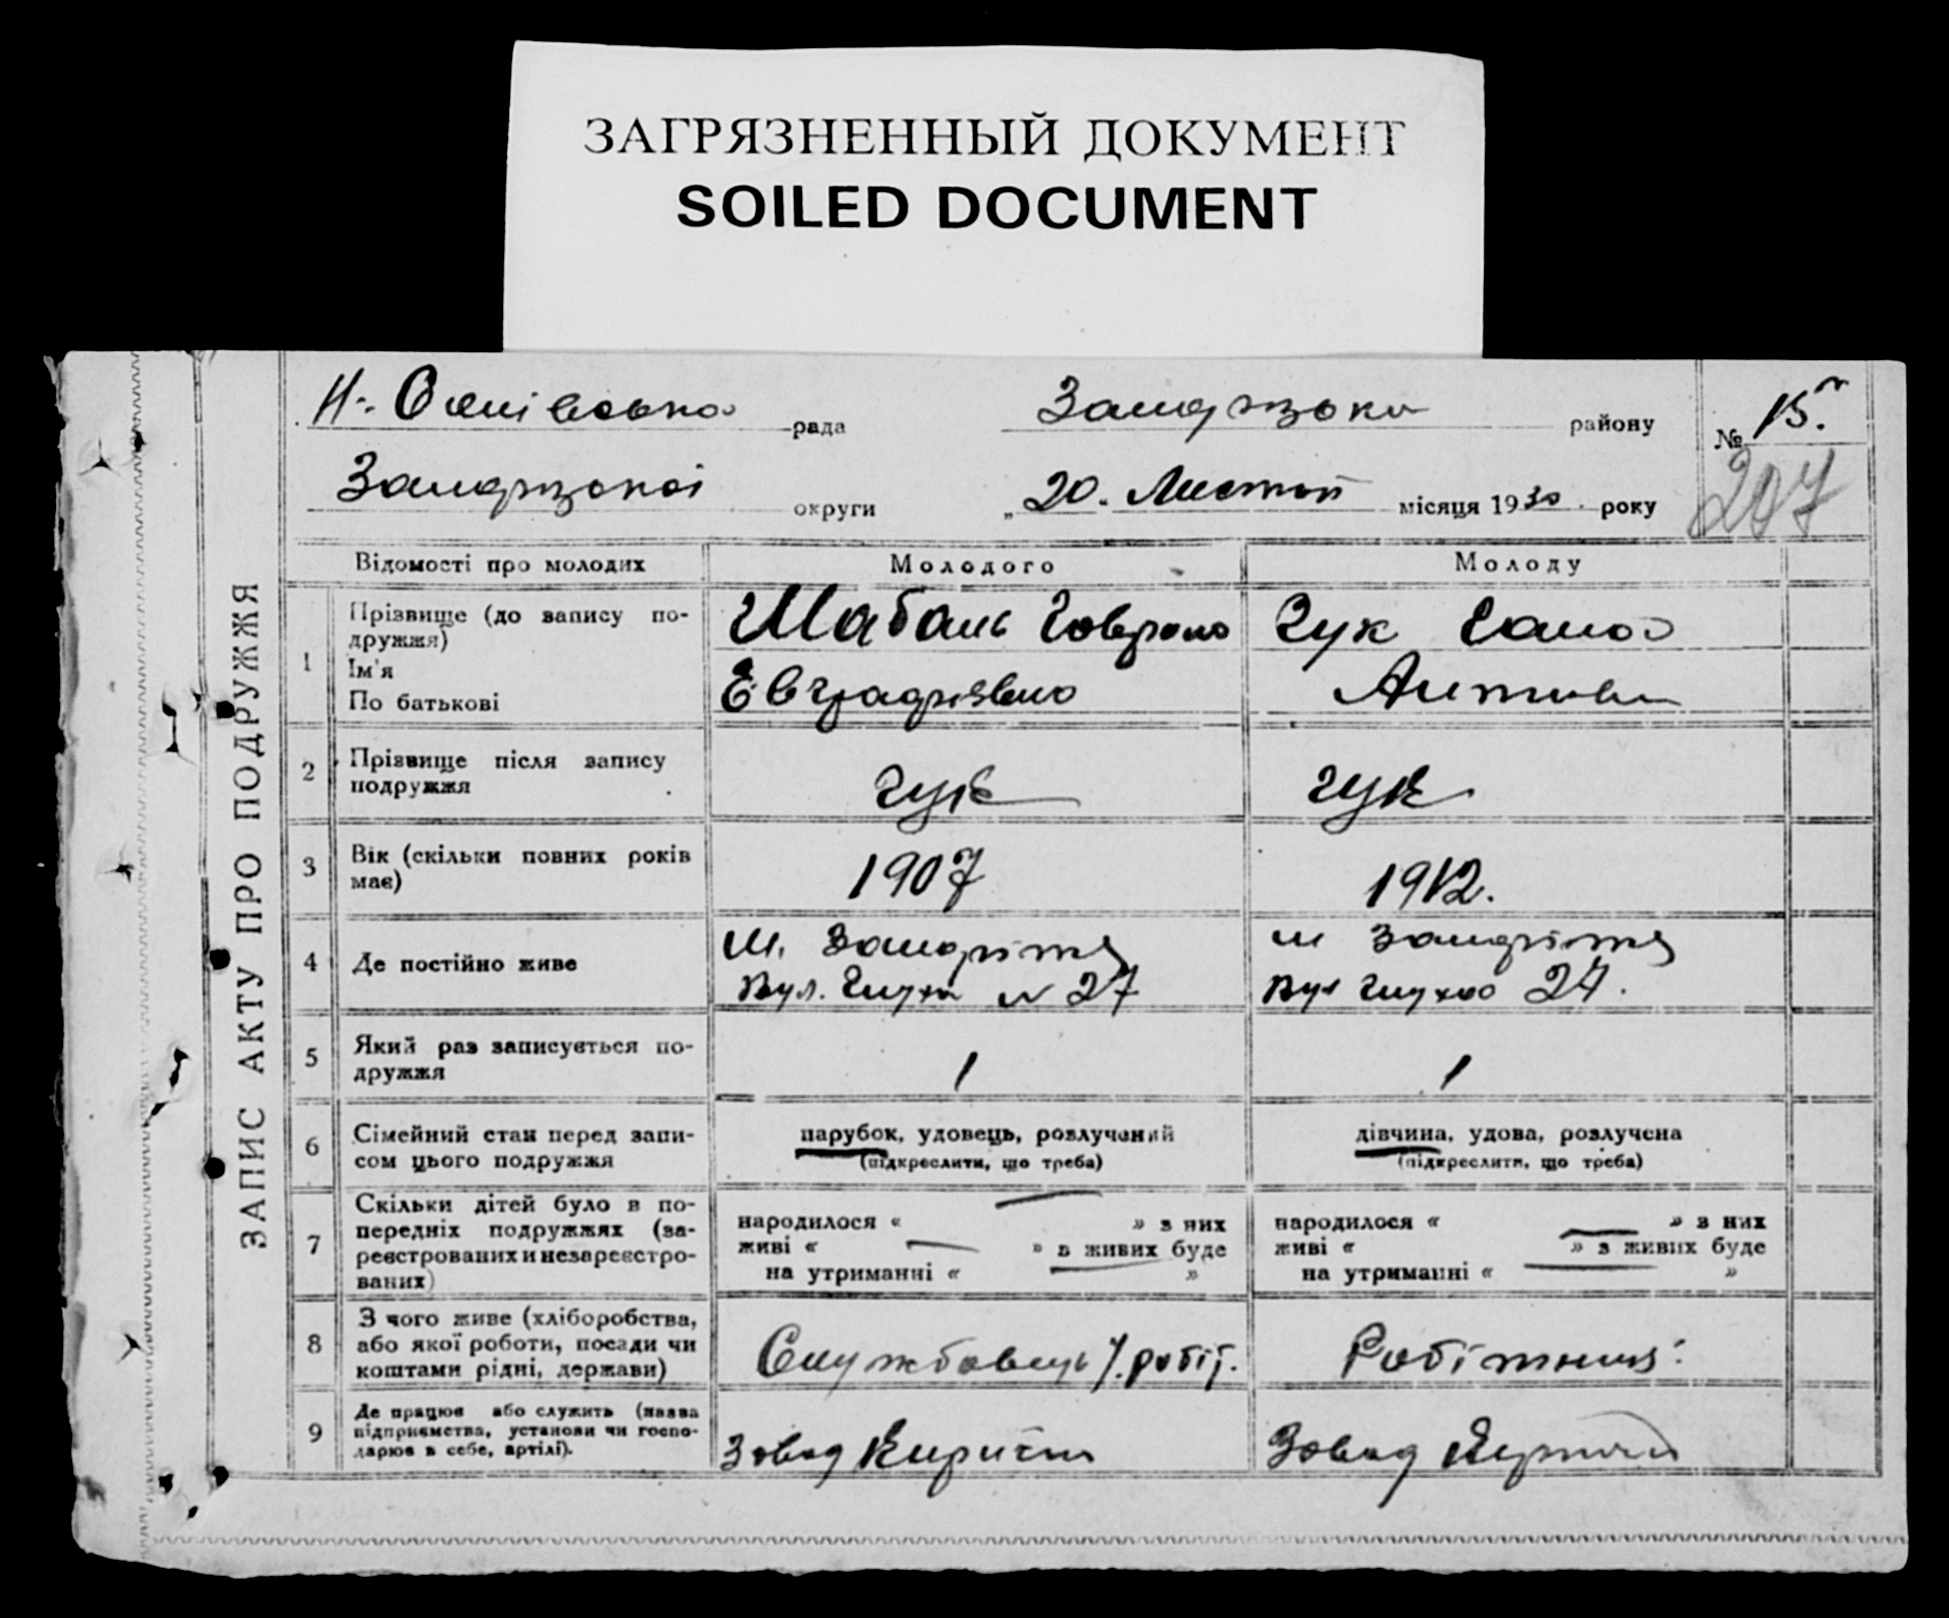 ЗАГРЯЗНЕННЫЙ ДОКУМЕНТ
SOILED DOCUMENT
рада
району
№ 15.
207
округи
„20. Листоп місяця 1930 року
ЗАПИС АКТУ ПРО ПОДРУЖЖЯ
Відомості про молодих
Молодого
Молоду
1
Прізвище (до запису по-
дружжя)
Ім'я
По батькові
Шабань
Гук
2
Прізвище після запису
подружжя
Гук
Гук
3
Вік (скільки повних років
має)
1907
1912.
4
Де постійно живе
м. Запоріжжя
Вул. № 27
м Запоріжжя
Вул 27.
5
Який раз записується по-
дружжя
1
1
6
Сімейний стан перед запи-
сом цього подружжя
парубок, удовець, розлучений
(підкреслити, що треба)
дівчина, удова, розлучена
(підкреслити, що треба)
7
Скільки дітей було в по-
передніх подружжях (за-
реєстрованих и незареєстро-
ваних)
народилося « » з них
живі « » в живих буде
на утриманні « »
народилося « » з них
живі « » з живих буде
на утриманні « »
8
З чого живе (хліборобства,
або якої роботи, посади чи
коштами рідні, держави)
Службовець
9
Де працює або служить (назва
підприємства, установи чи госпо-
дарює в себе, артілі).
Завод
Завод